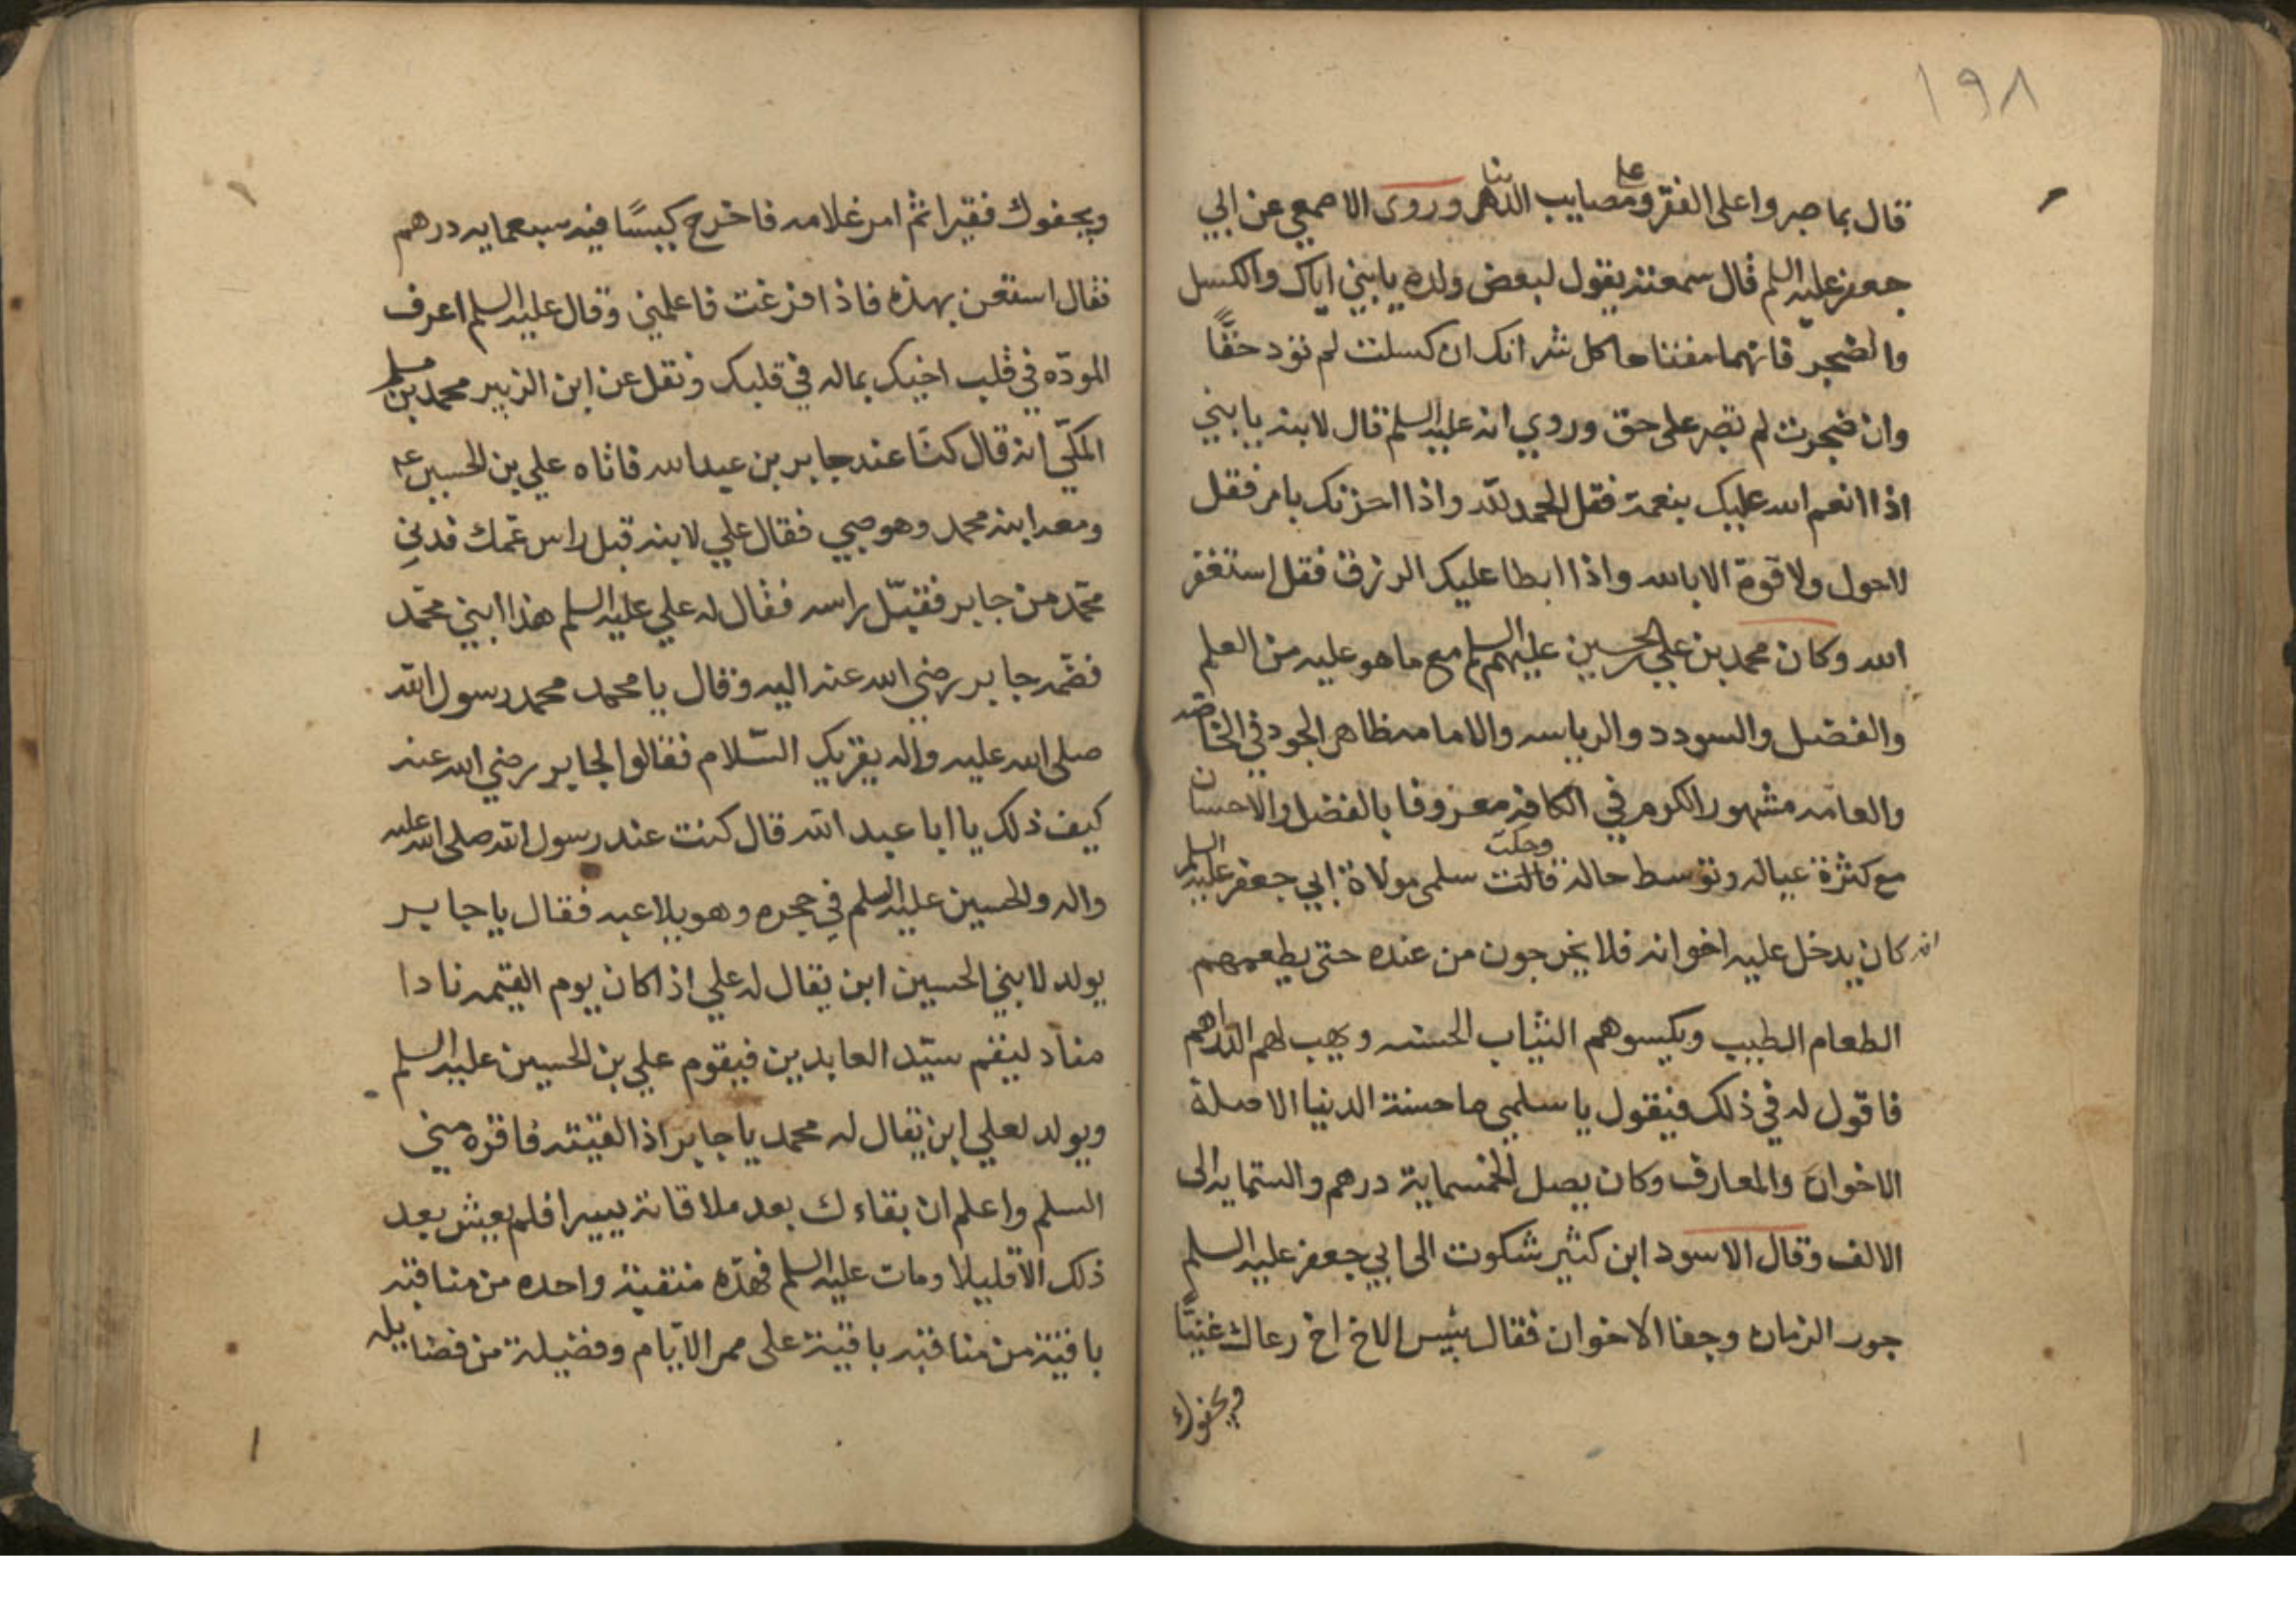 ١٩٨
قال بما صبروا على الفقر و على مصايب الدنيا وروى الاصمعي عن ابي
جعفر عليه السلم قال سمعته يقول لبعض ولده يا بني اياك والكسل
والضجر فانهما مفتاحا كل شر انك ان كسلت لم تود حقًّا
وان ضجرت لم تصبر على حق وروي انه عليه السلم قال لابنه يا بني
اذا انعم الله عليك بنعمة فقل الحمد لله واذا احزنك بامر فقل
لاحول ولا قوة الا بالله واذا ابطا عليك الرزق فقل استغفر
الله وكان محمد بن علي بن الحسين عليهم السلم مع ما هو عليه من العلم
والفضل والسودد والرياسه والامامه ظاهر الجود في الخاصه
والعامه مشهور الكرم في الكافه معروفا بالفضل والاحسان
مع كثرة عياله وتوسط حاله وحكت سلمى مولاة ابي جعفر عليه السلم
انه كان يدخل عليه اخوانه فلا يخرجون من عنده حتى يطعمهم
الطعام الطيب ويكسوهم الثياب الحسنه ويهب لهم الدراهم
فاقول له في ذلك فيقول يا سلمى ما حسنة الدنيا الا صلة
الاخوان والمعارف وكان يصل بالخمسماية درهم والستمايه الى
الالف وقال الاسود ابن كثير شكوت الى ابي جعفر عليه السلم
جور الزمان وجفا الاخوان فقال بئيس الاخ اخ رعاك غنيًّا
ويجفوك
ويجفوك فقيرا ثم امر غلامه فاخرج كيسًا فيه سبعمايه درهم
فقال استعن بهذه فاذا فرغت فاعلمني وقال عليه السلم اعرف
المودّه في قلب اخيك بماله في قلبك ونقل عن ابن الزبير محمد بن مسلم
المكّي انه قال كنّا عند جابر بن عبد الله فاتاه علي بن الحسين ع
ومعه ابنه محمد وهو صبي فقال علي لابنه قبل راس عمّك فدني
محمّد من جابر فقبّل راسه فقال له علي عليه السلم هذا ابني محمّد
فضمّه جابر رضي الله عنه اليه وقال يا محمد محمد رسول الله
صلى الله عليه واله يقريك السّلام فقالوا لجابر رضي الله عنه
كيف ذلك يا ابا عبد الله قال كنت عند رسول الله صلى الله عليه
واله والحسين عليه السلم في حجره وهو يلاعبه فقال يا جابر
يولد لابني الحسين ابن يقال له علي اذا كان يوم القيمه نادا
مناد ليقم سيّد العابدين فيقوم علي بن الحسين عليه السلم
ويولد لعلي ابن يقال له محمد يا جابر اذا لقيته فاقره مني
السلم واعلم ان بقاءك بعد ملاقاته يسيرا فلم يعيش بعد
ذلك الا قليلا ومات عليه السلم فهذه منقبة واحده من مناقبه
باقية من مناقبه باقية على ممر الايّام وفضيلة من فضايله